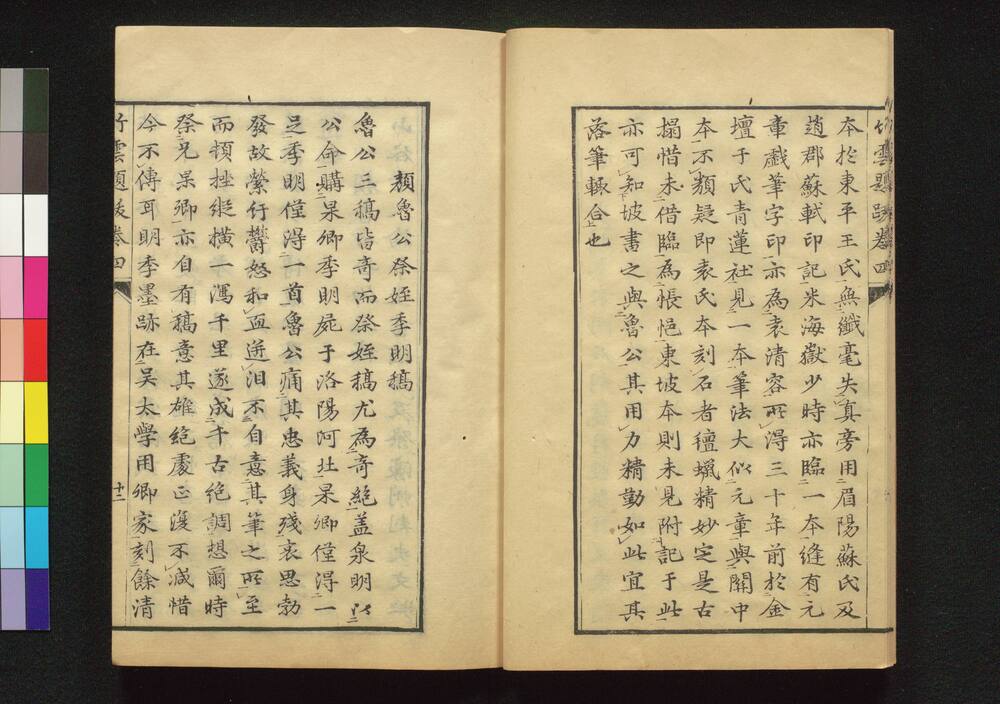 竹雲題跋卷四
本於東平王氏無纖毫失真旁用眉陽蘇氏及
趙郡蘇軾印記米海嶽少時亦臨一本縫有元
章戲筆字印亦為袁清容所得三十年前於金
壇于氏青蓮社見一本筆法大似元章與關中
本不類疑即袁氏本刻石者氊蠟精妙定是古
搨惜未借臨為悵悒東坡本則未見附記于此
亦可知坡書之與魯公其用力精勤如此宜其
落筆輙合也
顏魯公祭姪季明稿
魯公三稿皆奇而祭姪稿尤為奇絕蓋泉明以
公命購杲卿季明屍于洛陽河北杲卿僅得一
足季明僅得一首魯公痛其忠義身殘哀思勃
發故縈紆鬱怒和血迸淚不自意其筆之所至
而頓挫縱橫一瀉千里遂成千古絕調想爾時
祭兄杲卿亦自有稿意其雄絕處正復不減惜
今不傳耳明季墨跡在吳太學用卿家刻餘清
竹雲題跋卷四
十二